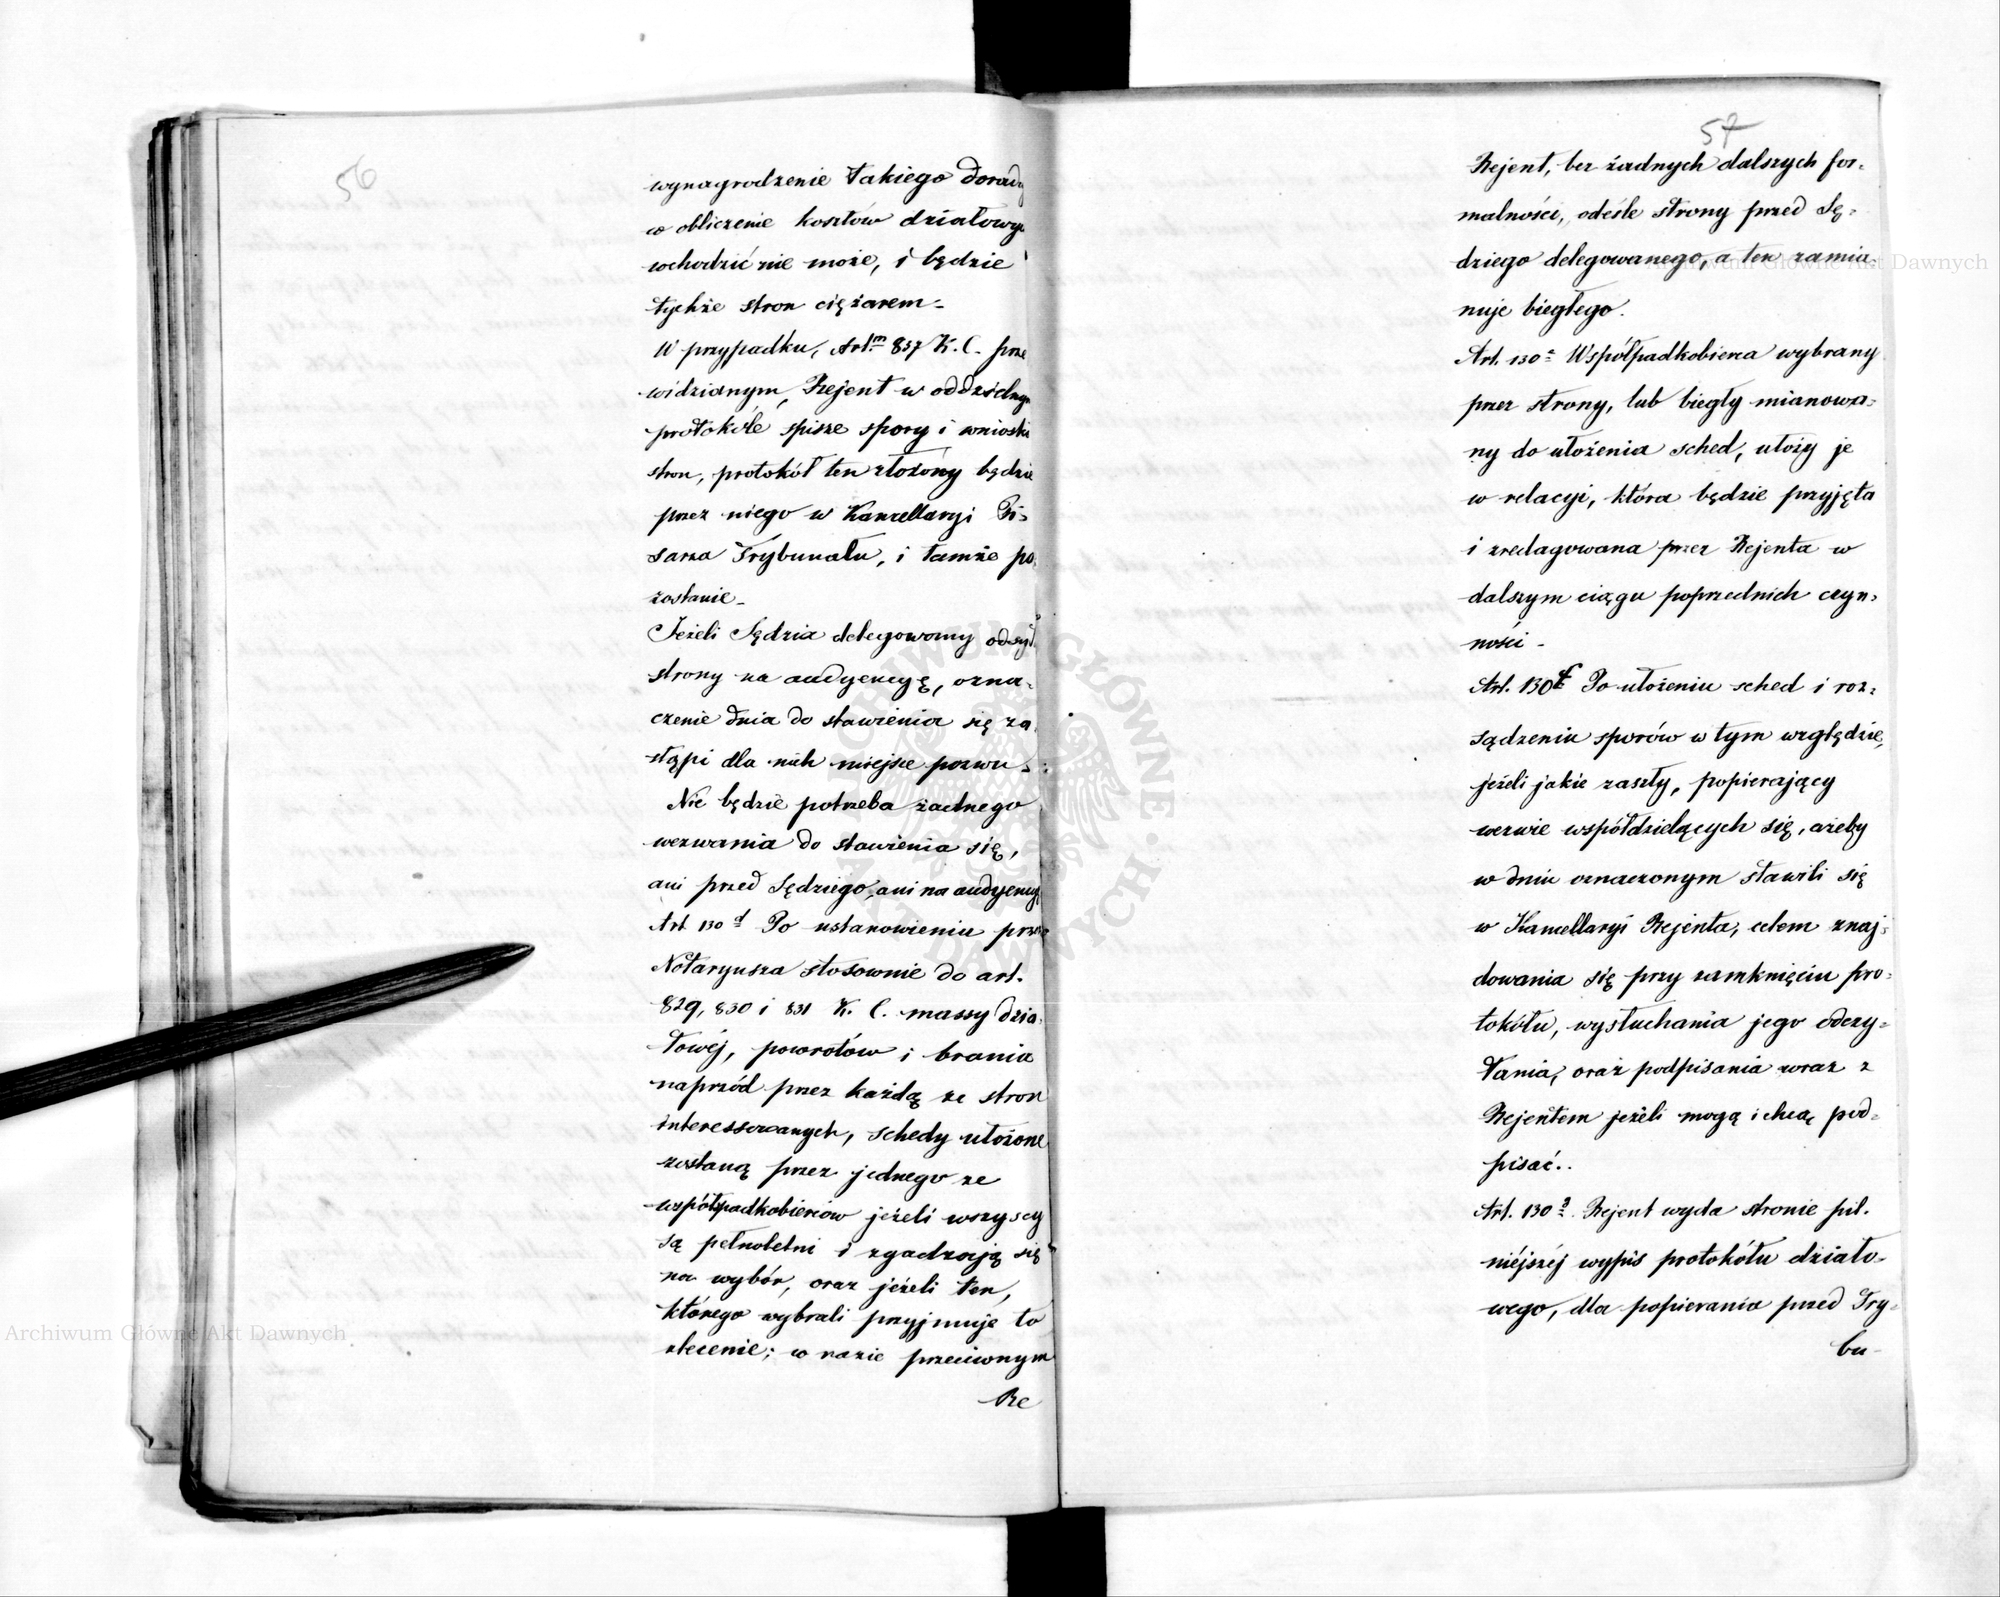 56
wynagrodzenie takiego dorady
w obliczenie kosztów działowy
wchodzić nie może, i będzie
tychże stron ciężarem -
W przypadku, Art.m 837 K. C. prze
widzianym, Rejent w oddzielny
protokóle spisze spory i wnioski
stron, protokół ten złożony będzie
przez niego w Kancellaryi Pi-
sarza Trybunału, i tamże po
zostanie -
Jeżeli Sędzia delegowany odeszł
strony na audyencyę, ozna-
czenie dnia do stawienia się za
stąpi dla nich miejsce pozwu -
Nie będzie potrzeba żadnego
wezwania do stawienia się,
ani przed Sędziego, ani na audyencyę
Art 130 d Po ustanowieniu przez
Notaryusza stosownie do art.
829, 830 i 831 K. C. massy dzia-
łowéj, powrotów i brania
naprzód przez każdą ze stron
interessowanych, schedy ułożone
zostaną przez jednego ze
współspadkobierców jeżeli wszyscy
są pełnoletni i zgadzają się
na wybór, oraz jeżeli ten,
którego wybrali przyjmuje to
zlecenie; w razie przeciwnym
Re
57
Rejent, bez żadnych dalszych for-
malności, odeśle strony przed Sę-
dziego delegowanego, a ten zamia
nuje biegłego.
Art. 130 e Współspadkobierca wybrany
przez strony, lub biegły mianowa-
ny do ułożenia sched, ułoży je
w relacyi, która będzie przyjęta
i zredagowana przez Rejenta w
dalszym ciągu poprzednich czyn-
ności -
Art. 130 f Po ułożeniu sched i roz-
sądzeniu sporów w tym względzie,
jeżeli jakie zaszły, popierający
wezwie współdzielących się, ażeby
w dniu oznaczonym stawili się
w Kancellaryi Rejenta, celem znaj-
dowania się przy zamknięciu pro-
tokółu, wysłuchania jego odczy-
tania, oraz podpisania wraz z
Rejentem jeżeli mogą i chcą pod-
pisać..
Art. 130 g. Rejent wyda stronie pil-
niéjszéj wypis protokółu działo-
wego, dla popierania przed Try-
bu-
Archiwum Główne Akt Dawnych
Archiwum Główne Akt Dawnych